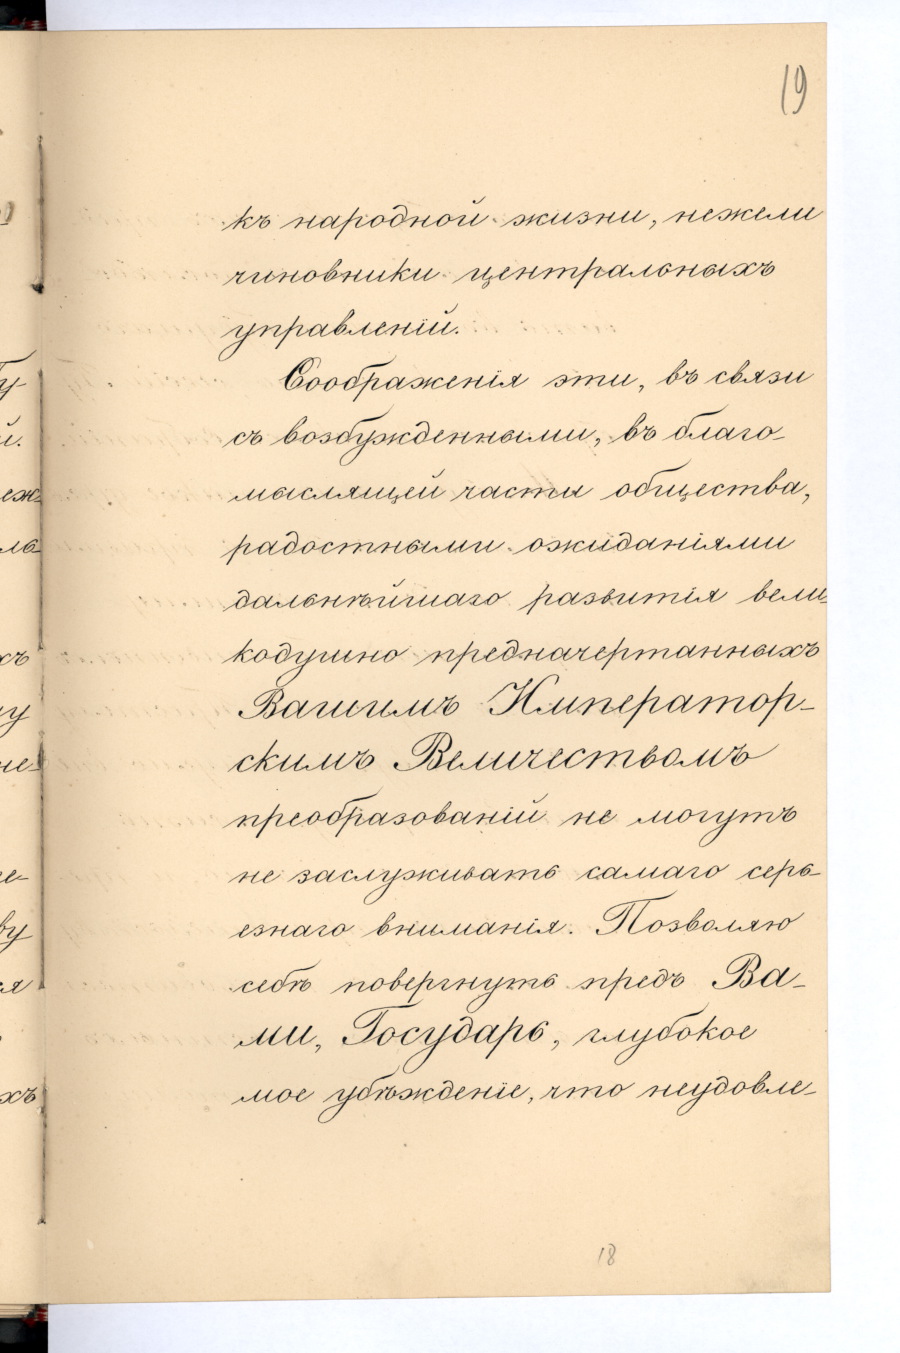 19
къ народной жизни, нежели
чиновники центральныхъ
управленій.
Соображенія эти, въ связи
съ возбужденными, въ благо-
мыслящей части общества,
радостными ожиданіями
дальнѣйшаго развитія вели-
кодушно предначертанныхъ
Вашимъ Император-
скимъ Величествомъ
преобразованій не могутъ
не заслуживать самаго серь-
езнаго вниманія. Позволяю
себѣ повергнуть предъ Ва-
ми, Государь, глубокое
мое убѣжденіе, что неудовле-
18